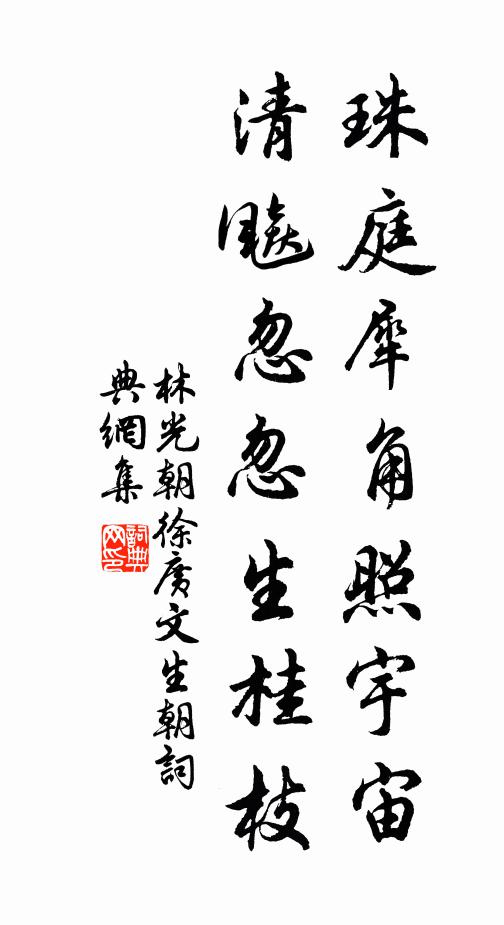 珠庭犀角照宇宙
清飈忽忽生桂枝
林光朝徐廣文生朝詞
典網集
詞典
网印